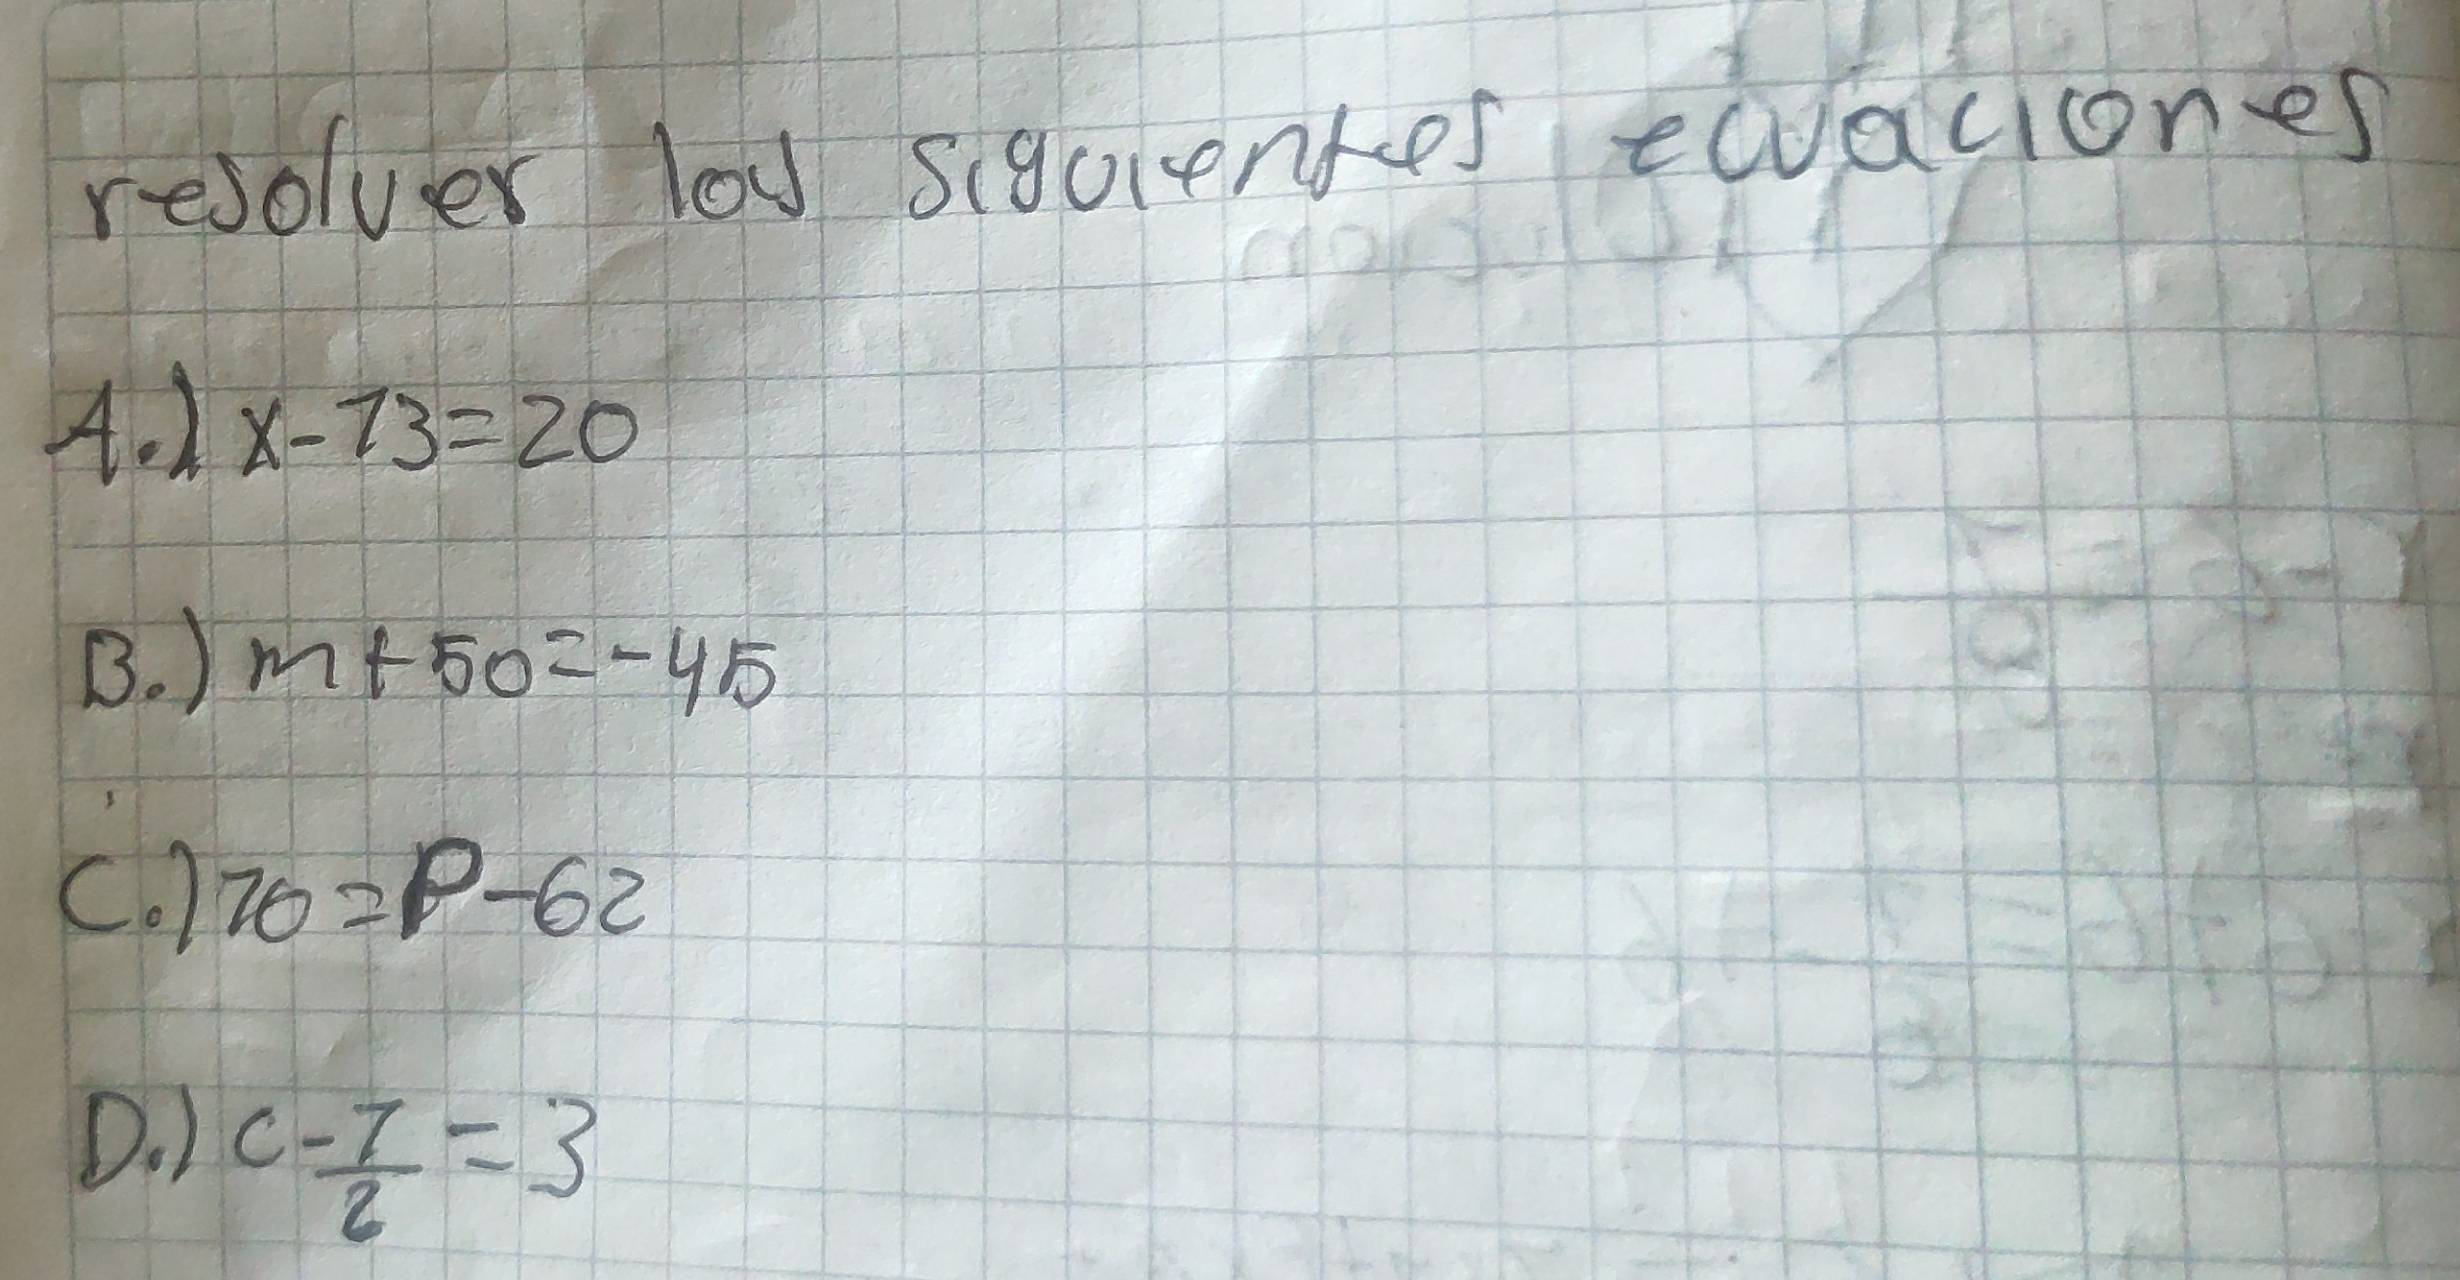 resolver los siguientes ecuaciones
A.) x-13=20
B.) m+50=-45
C.) 70=P-62
D.) c-7/2=3